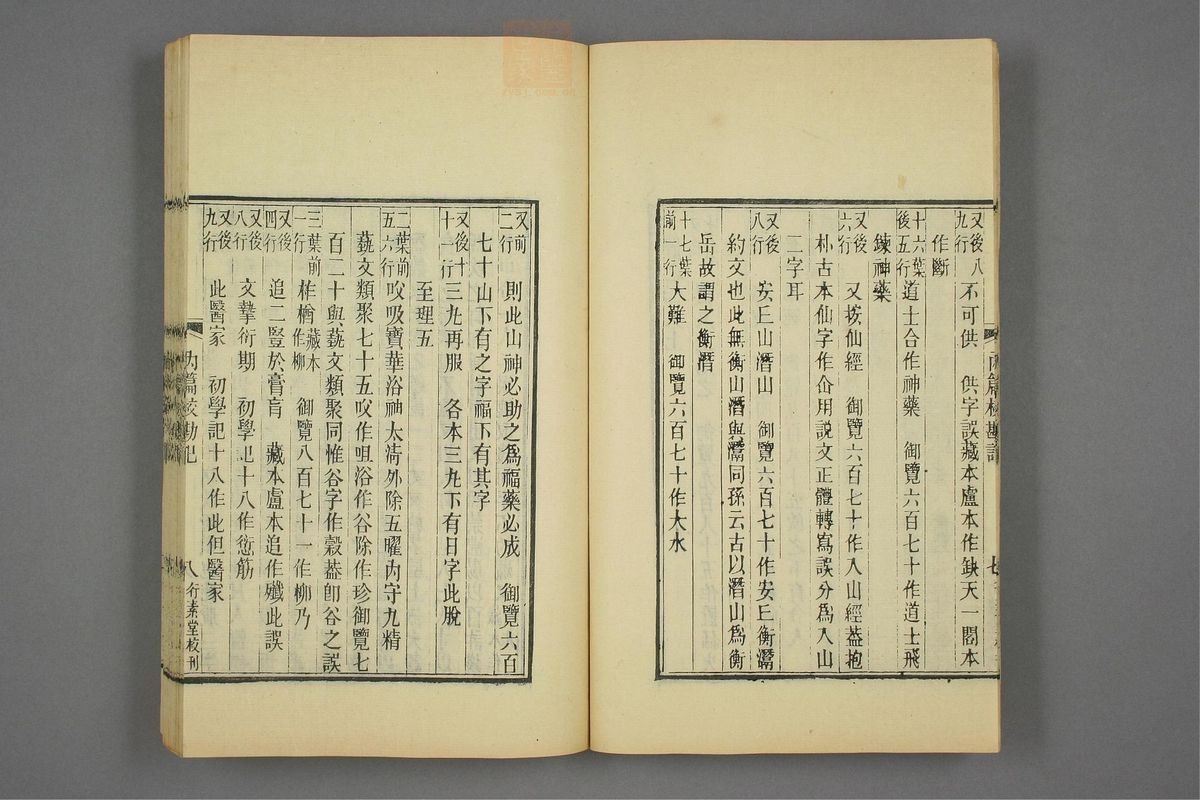 又後八九行 不可供 供字誤藏本盧本作缺天一閣本
作斷
十六葉後五行道士合作神藥 御覽六百七十作道士飛
鍊神藥
又後六行 又按仙經 御覽六百七十作入山經葢抱
朴古本仙字作仚用說文正體轉寫誤分為入山
二字耳
又後八行 安丘山潛山 御覽六百七十作安丘衡灊
約文也此無衡山潛與灊同孫云古以潛山為衡
岳故謂之衡潛
十七葉前一行大難 御覽六百七十作大水
內篇校勘記
七
又前二行 則此山神必助之為福藥必成 御覽六百
七十山下有之字福下有其字
又後十十一行三九再服 各本三九下有日字此脫
至理五
二葉前五六行㕮吸寶華浴神太淸外除五曜內守九精
藝文類聚七十五㕮作咀浴作谷除作珍御覽七
百二十與藝文類聚同惟谷字作穀葢卽谷之誤
三葉前一行柞楢藏本作柳 御覽八百七十一作柳乃
又後四行 追二豎於膏肓 藏本盧本追作殲此誤
又後八行 文摯衍期 初學記十八作愆筋
又後九行 此醫家 初學記十八作此但醫家
內篇校勘記
八
行素堂校刊